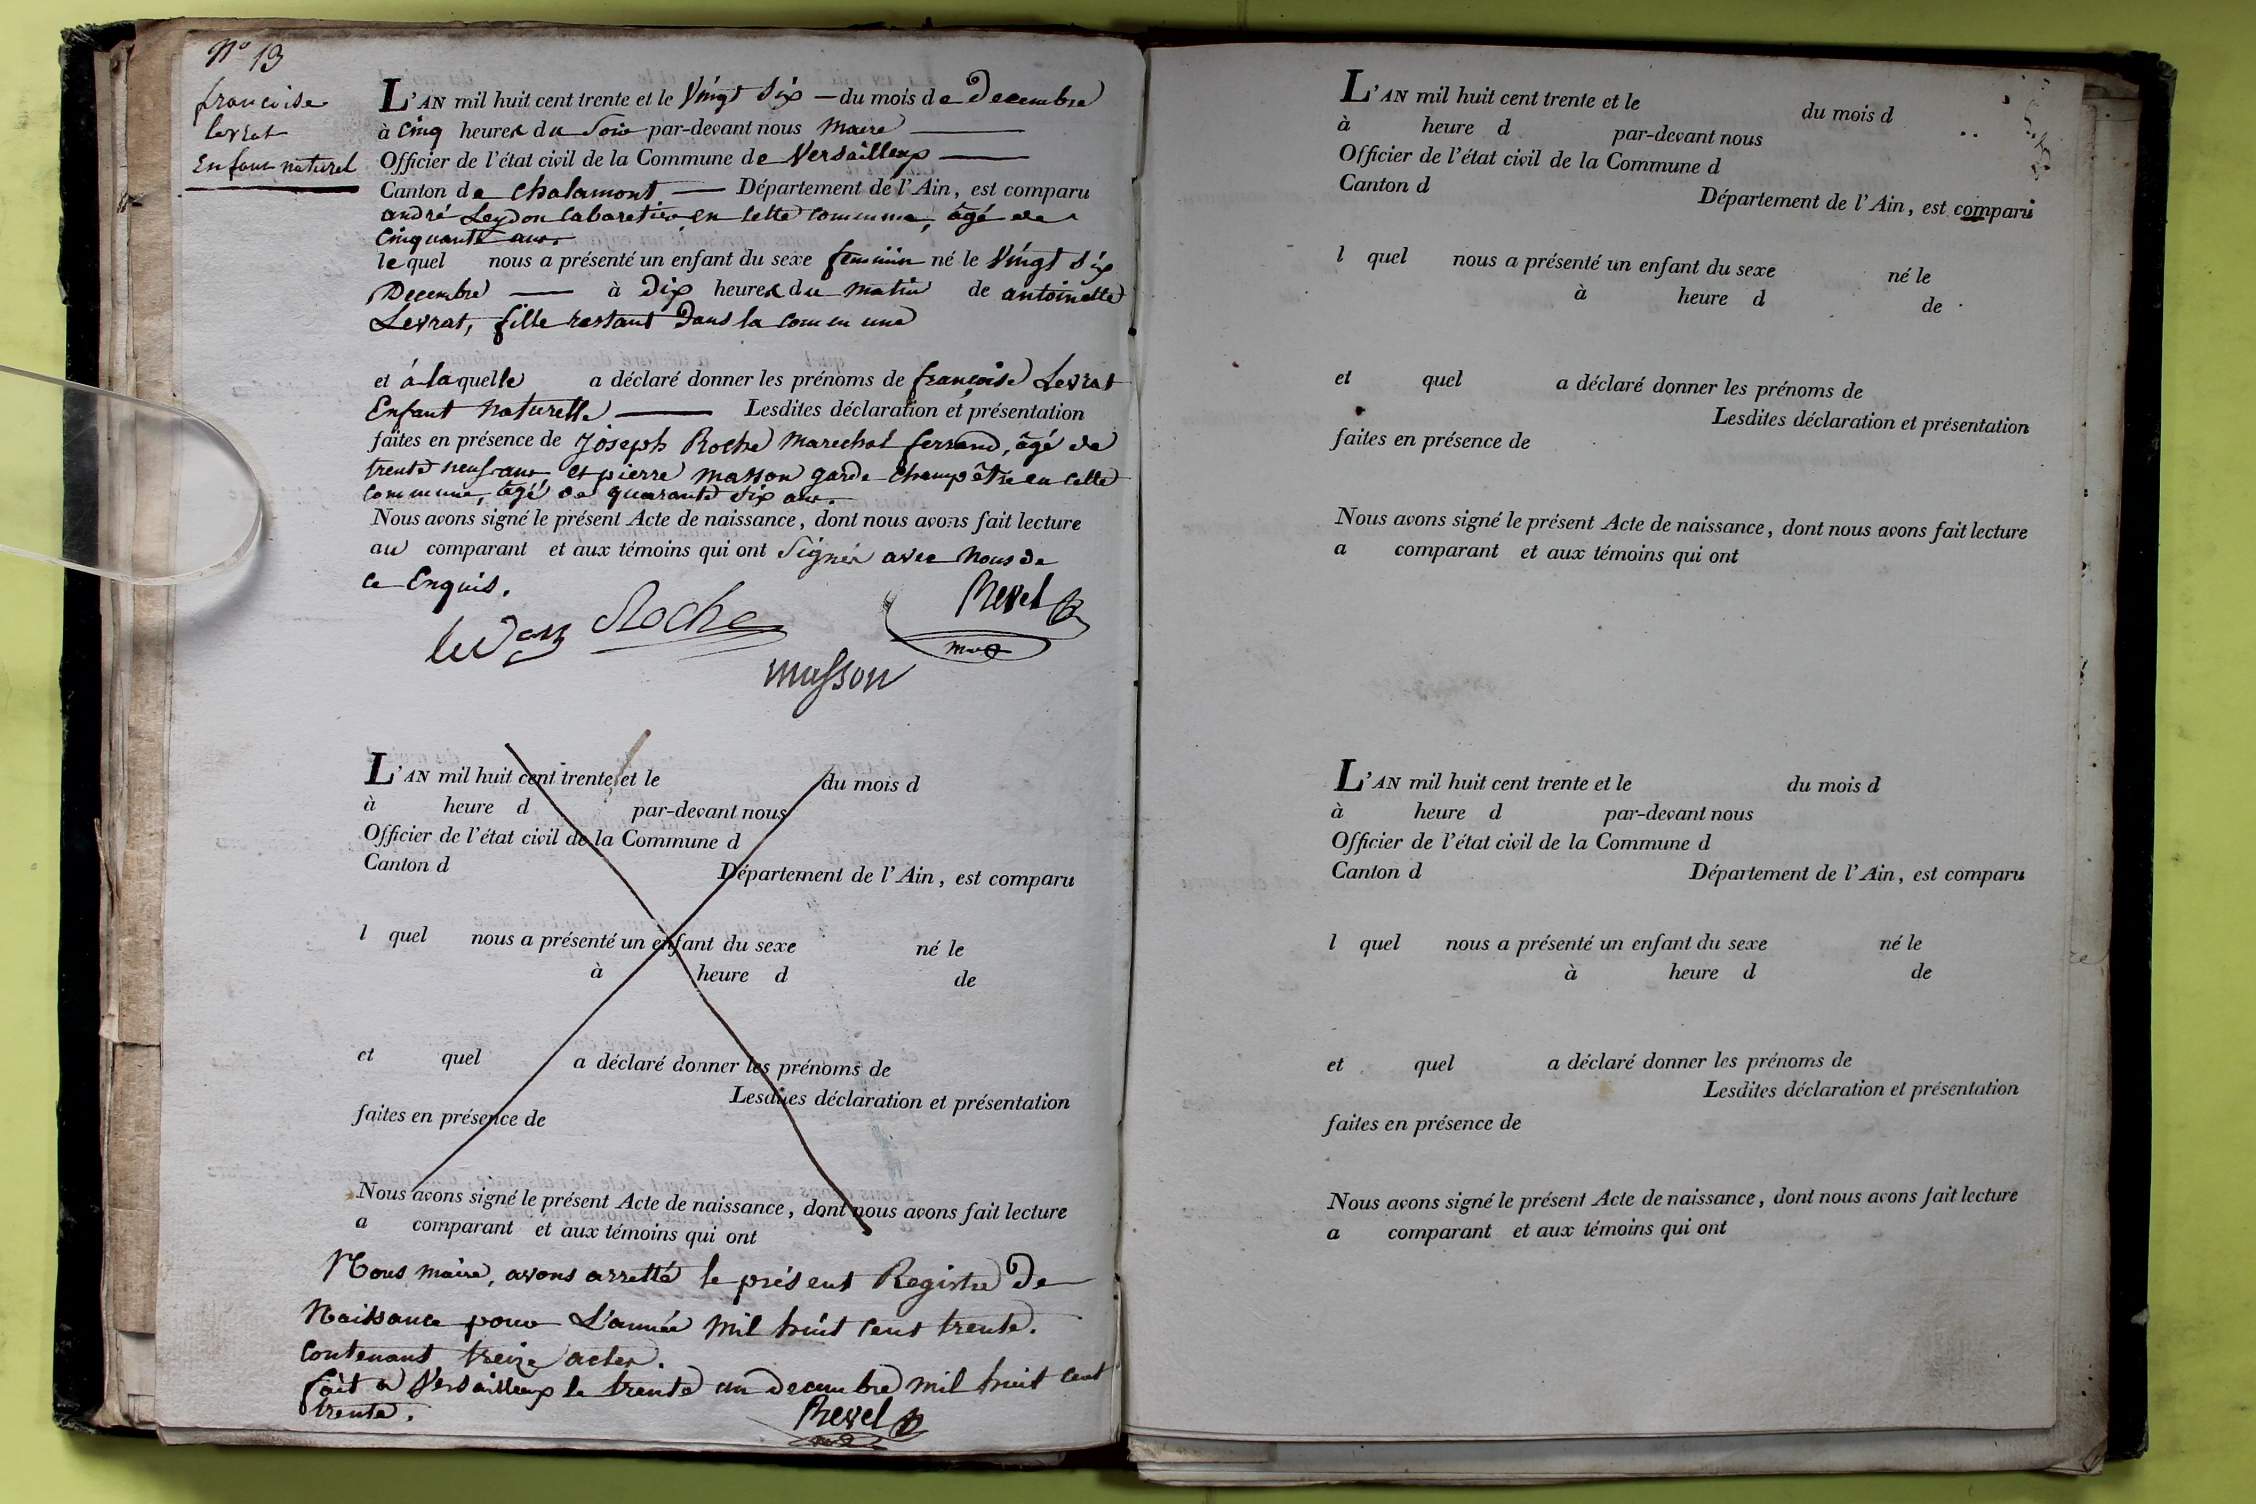 N° 13
francoise
levrat
Enfant naturel
L'AN mil huit cent trente et le Vingt Six — du mois de Decembre
à Cinq heures du Soir par-devant nous Maire
Officier de l'état civil de la Commune de Versailleux
Canton de Chalamont — Département de l'Ain, est comparu
andré Leydon Cabaretier en cette commune, âgé de
Cinquante ans.
lequel nous a présenté un enfant du sexe feminin né le Vingt Six
Decembre — à Dix heures du matin de antoinette
Levrat, fille restant Dans la commune
et à laquelle a déclaré donner les prénoms de françoise Levrat
Enfant Naturelle — Lesdites déclaration et présentation
faites en présence de Joseph Roche Marechal ferrand, âgé de
trente neuf ans, et pierre Masson garde Champêtre en cette
Commune, âgé de quarante Six ans.
Nous avons signé le présent Acte de naissance, dont nous avons fait lecture
au comparant et aux témoins qui ont Signés avec Nous de
ce Enquis.
Roche
Revel
masson
L'AN mil huit cent trente et le du mois d
à heure d par-devant nous
Officier de l'état civil de la Commune d
Canton d Département de l'Ain, est comparu
l quel nous a présenté un enfant du sexe né le
à heure d de
et quel a déclaré donner les prénoms de
Lesdites déclaration et présentation
faites en présence de
Nous avons signé le présent Acte de naissance, dont nous avons fait lecture
a comparant et aux témoins qui ont
Nous maire, avons arretté le présent Registre De
Naissance pour L'année Mil huit cent trente.
Contenant treize actes.
fait a Versailleux le trente un decembre mil huit cent
trente.
Revel
L'AN mil huit cent trente et le du mois d
à heure d par-devant nous
Officier de l'état civil de la Commune d
Canton d Département de l'Ain, est comparu
l quel nous a présenté un enfant du sexe né le
à heure d de
et quel a déclaré donner les prénoms de
Lesdites déclaration et présentation
faites en présence de
Nous avons signé le présent Acte de naissance, dont nous avons fait lecture
a comparant et aux témoins qui ont
L'AN mil huit cent trente et le du mois d
à heure d par-devant nous
Officier de l'état civil de la Commune d
Canton d Département de l'Ain, est comparu
l quel nous a présenté un enfant du sexe né le
à heure d de
et quel a déclaré donner les prénoms de
Lesdites déclaration et présentation
faites en présence de
Nous avons signé le présent Acte de naissance, dont nous avons fait lecture
a comparant et aux témoins qui ont